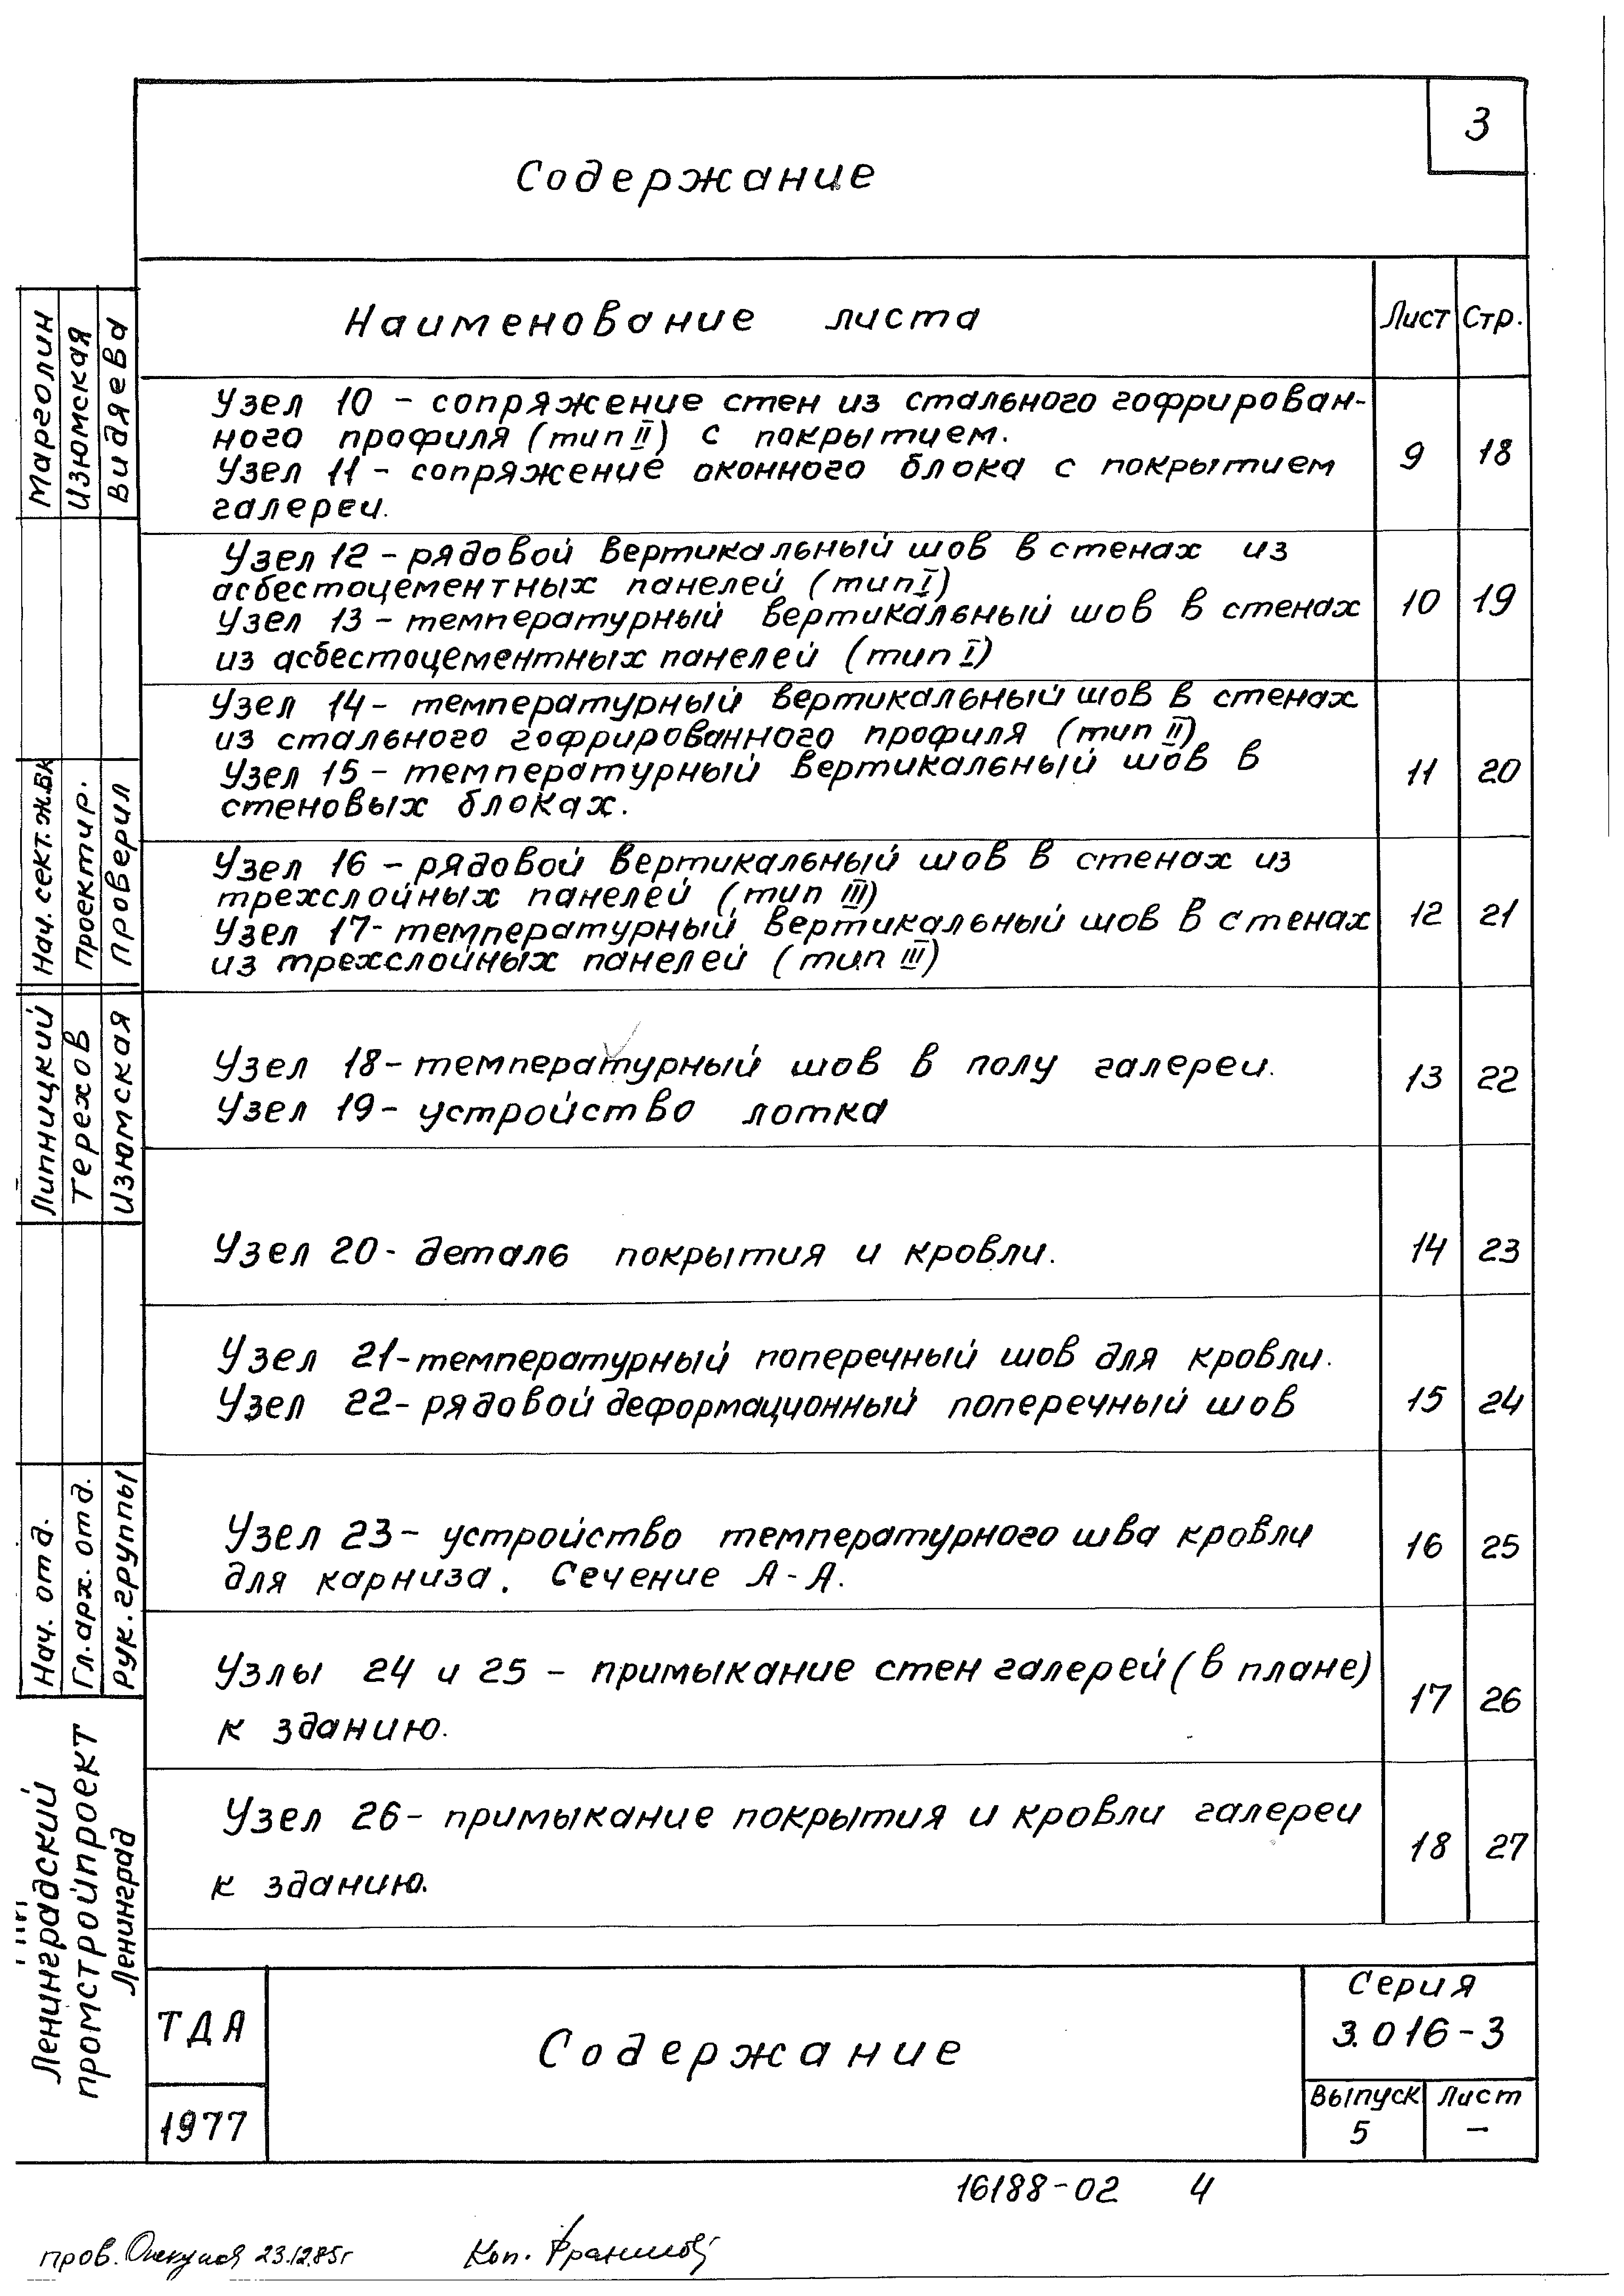 3
Содержание
Наименование листа
Лист
Стр.
Узел 10 - сопряжение стен из стального гофрирован-
ного профиля (тип II) с покрытием.
Узел 11 - сопряжение оконного блока с покрытием
галереи.
9
18
Узел 12 - рядовой вертикальный шов в стенах из
асбестоцементных панелей (тип I)
Узел 13 - температурный вертикальный шов в стенах
из асбестоцементных панелей (тип I)
10
19
Узел 14 - температурный вертикальный шов в стенах
из стального гофрированного профиля (тип II)
Узел 15 - температурный вертикальный шов в
стеновых блоках.
11
20
Узел 16 - рядовой вертикальный шов в стенах из
трехслойных панелей (тип III)
Узел 17 - температурный вертикальный шов в стенах
из трехслойных панелей (тип III)
12
21
Узел 18 - температурный шов в полу галереи.
Узел 19 - устройство лотка
13
22
Узел 20 - деталь покрытия и кровли.
14
23
Узел 21 - температурный поперечный шов для кровли.
Узел 22 - рядовой деформационный поперечный шов
15
24
Узел 23 - устройство температурного шва кровли
для карниза. Сечение А-А.
16
25
Узлы 24 и 25 - примыкание стен галерей (в плане)
к зданию.
17
26
Узел 26 - примыкание покрытия и кровли галереи
к зданию.
18
27
Марголин
Изюмская
Видяева
Нач. сект. ж.бк
Проектир.
Проверил
Липницкий
Терехов
Изюмская
Нач. отд.
Гл. арх. отд.
Рук. группы
Ленинградский
промстройпроект
Ленинград
ТДА
1977
Содержание
Серия
3.016-3
Выпуск
5
Лист
-
16188-02 4
пров. 23.12.85г
Коп.